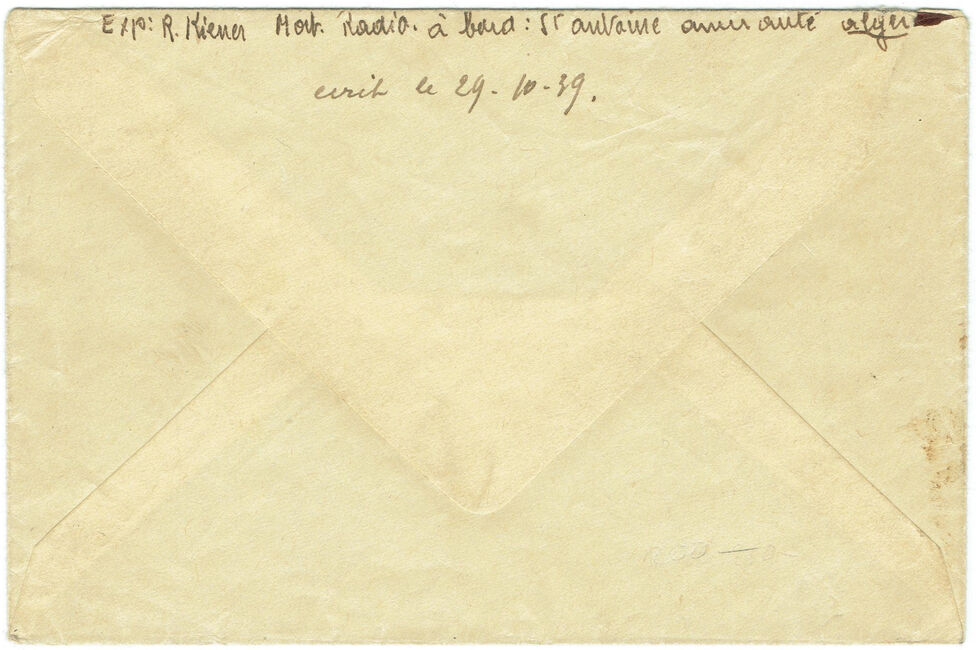 Exp: R. Kiener Mat. Radio. à bord: St antoine amirauté alger
écrit le 29-10-39.